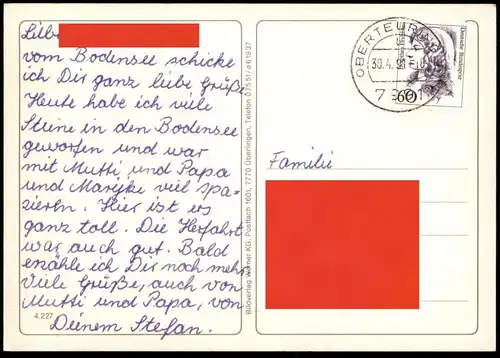 Liebe
vom Bodensee schicke
ich Dir ganz liebe Grüße.
Heute habe ich viele
Steine in den Bodensee
geworfen und war
mit Mutti und Papa
und Marijke viel spa-
zieren. Hier ist es
ganz toll. Die Herfahrt
war auch gut. Bald
erzähle ich Dir noch mehr.
Viele Grüße, auch von
Mutti und Papa, von
Deinem Stefan.
4.227
Bildverlag Werner KG, Postfach 1601, 7770 Überlingen, Telefon 07551/ø61937
OBERTEUR
30.4.
60
Deutsche Bundespost
Familie